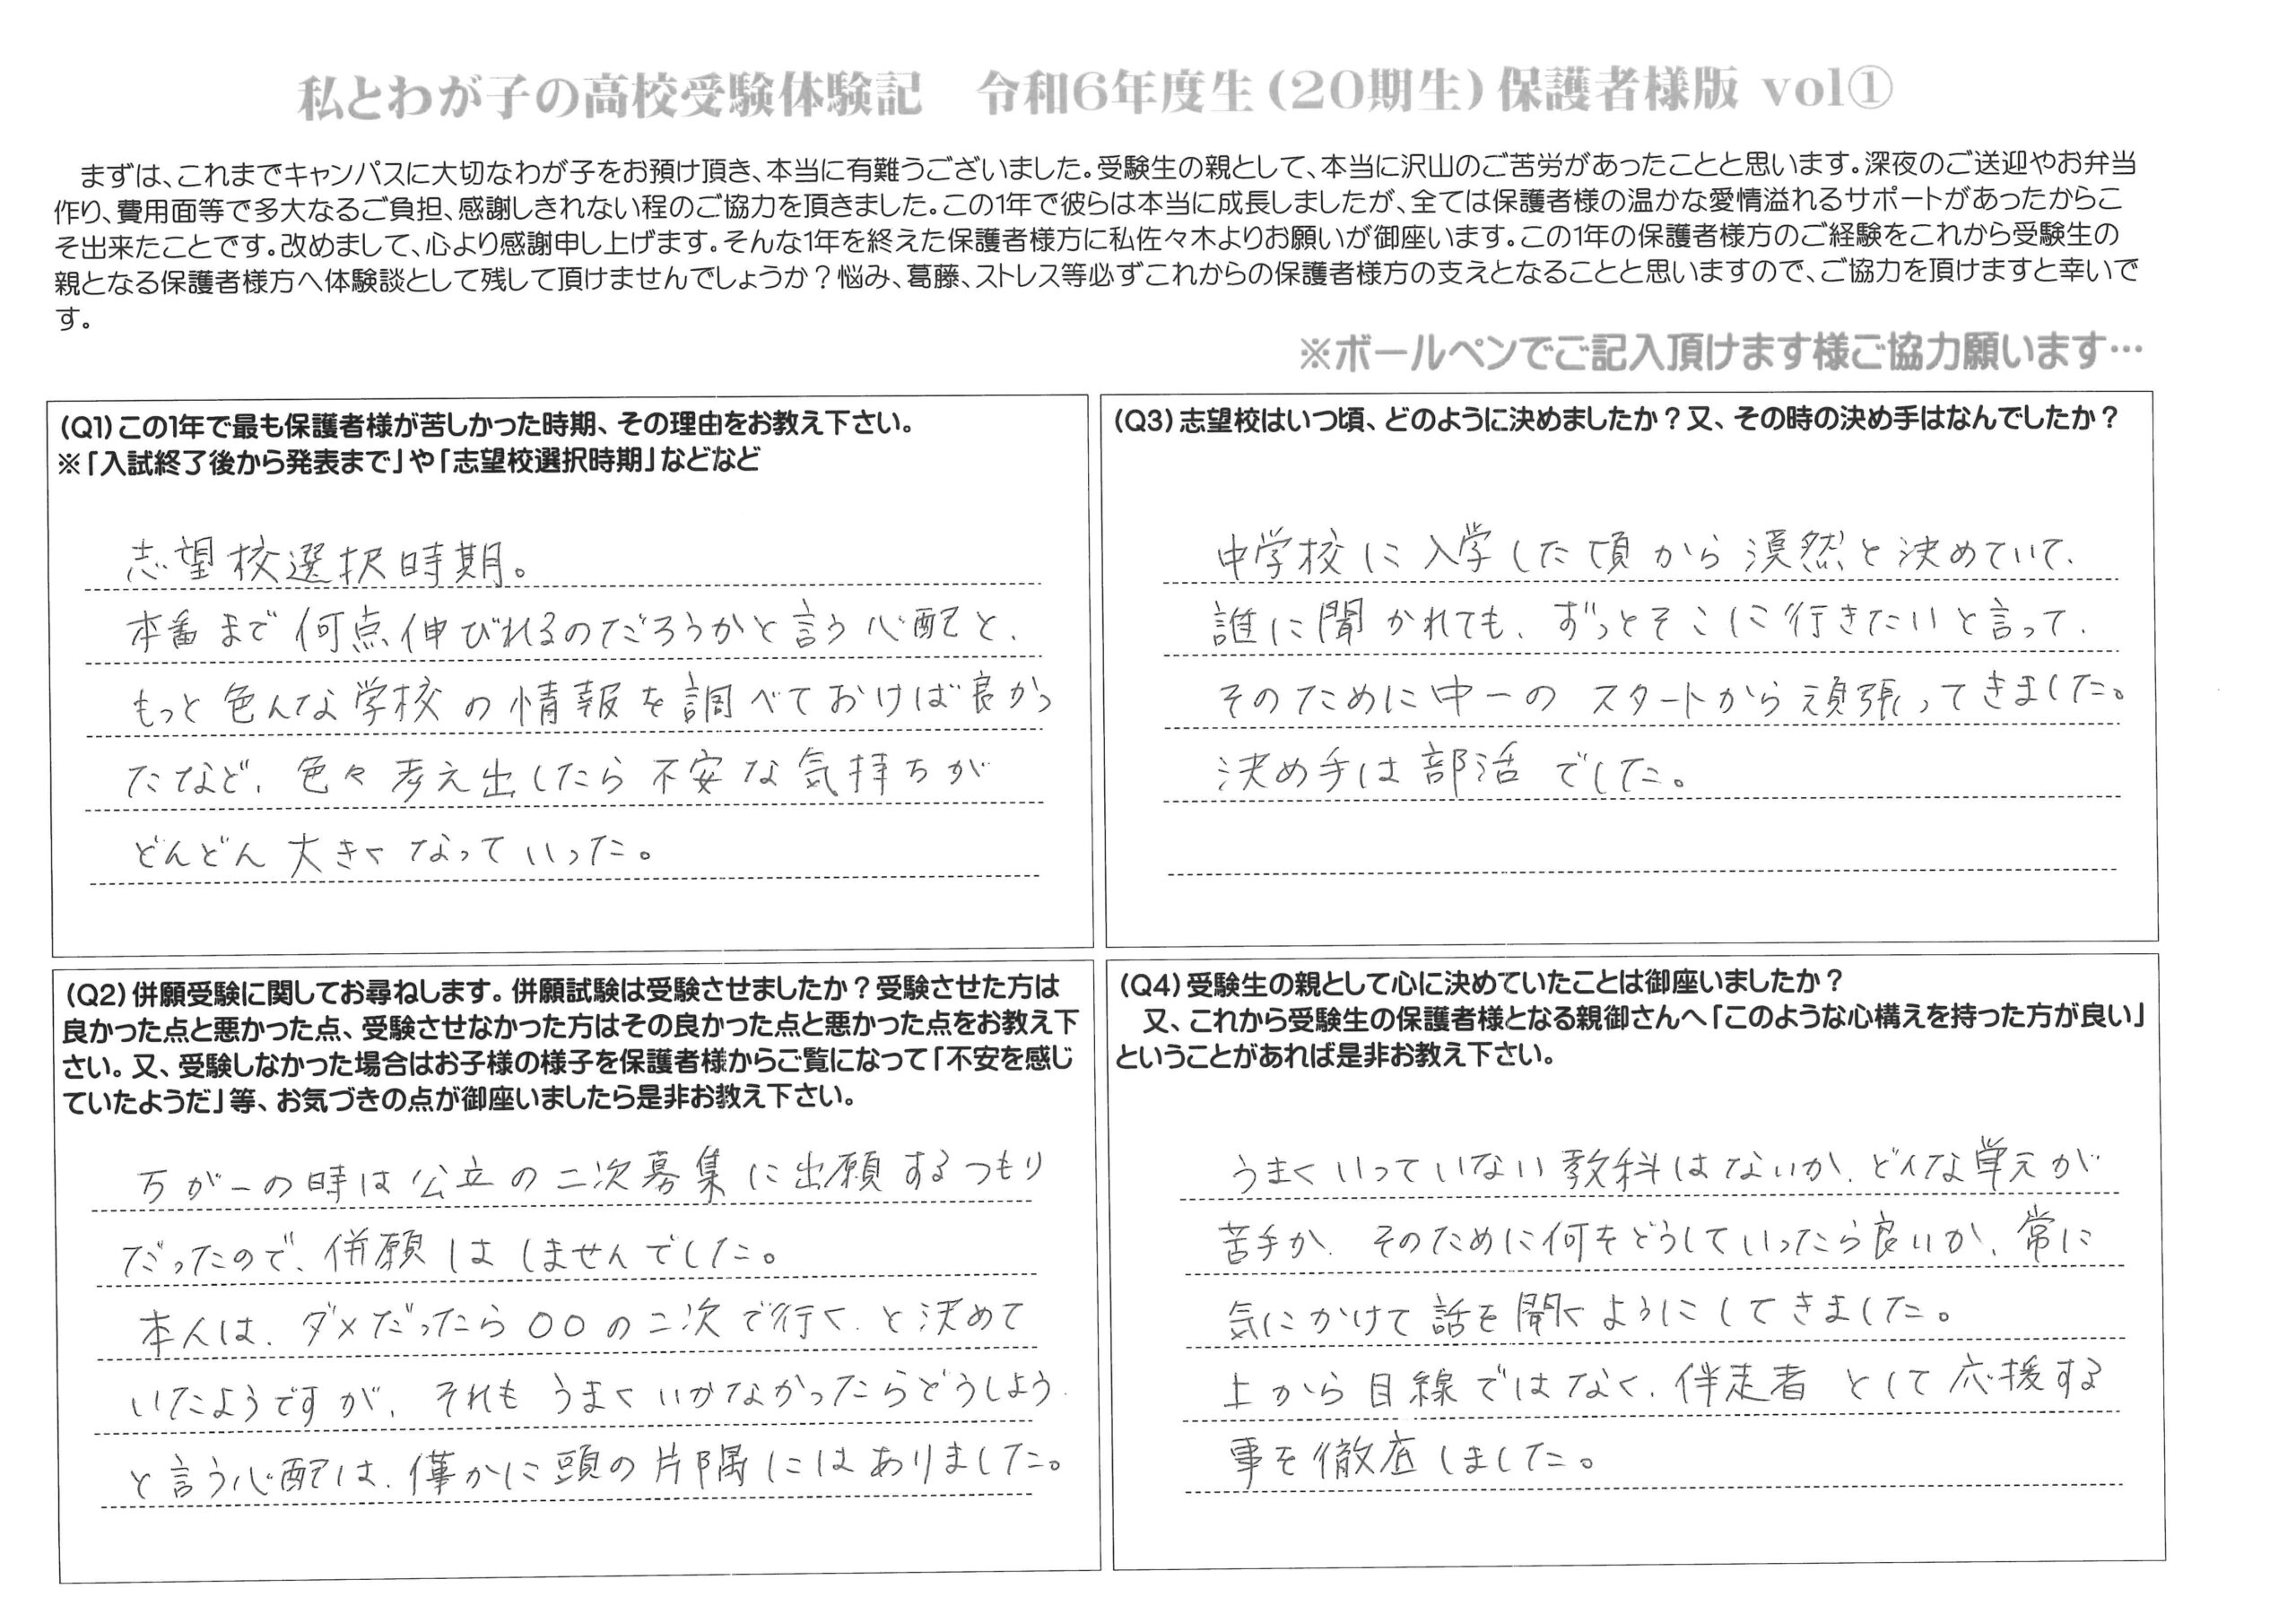 私とわが子の高校受験体験記　令和6年度生(20期生)保護者様版 vol①
まずは、これまでキャンパスに大切なわが子をお預け頂き、本当に有難うございました。受験生の親として、本当に沢山のご苦労があったことと思います。深夜のご送迎やお弁当
作り、費用面等で多大なるご負担、感謝しきれない程のご協力を頂きました。この1年で彼らは本当に成長しましたが、全ては保護者様の温かな愛情溢れるサポートがあったからこ
そ出来たことです。改めまして、心より感謝申し上げます。そんな1年を終えた保護者様方に私佐々木よりお願いが御座います。この1年の保護者様方のご経験をこれから受験生の
親となる保護者様方へ体験談として残して頂けませんでしょうか？悩み、葛藤、ストレス等必ずこれからの保護者様方の支えとなることと思いますので、ご協力を頂けますと幸いで
す。
※ボールペンでご記入頂けます様ご協力願います…
(Q1)この1年で最も保護者様が苦しかった時期、その理由をお教え下さい。
※「入試終了後から発表まで」や「志望校選択時期」などなど
志望校選択時期。
本番まで何点伸びれるのだろうかと言う心配と、
もっと色んな学校の情報を調べておけば良かっ
たなど、色々考え出したら不安な気持ちが
どんどん大きくなっていった。
(Q2)併願受験に関してお尋ねします。併願試験は受験させましたか？受験させた方は
良かった点と悪かった点、受験させなかった方はその良かった点と悪かった点をお教え下
さい。又、受験しなかった場合はお子様の様子を保護者様からご覧になって「不安を感じ
ていたようだ」等、お気づきの点が御座いましたら是非お教え下さい。
万が一の時は公立の二次募集に出願するつもり
だったので、併願はしませんでした。
本人は、ダメだったら〇〇の二次で行く、と決めて
いたようですが、それもうまくいかなかったらどうしよう、
と言う心配は、僅かに頭の片隅にはありました。
(Q3)志望校はいつ頃、どのように決めましたか？又、その時の決め手はなんでしたか？
中学校に入学した頃から漠然と決めていて、
誰に聞かれても、ずっとそこに行きたいと言って、
そのために中一のスタートから頑張ってきました。
決め手は部活でした。
(Q4)受験生の親として心に決めていたことは御座いましたか？
又、これから受験生の保護者様となる親御さんへ「このような心構えを持った方が良い」
ということがあれば是非お教え下さい。
うまくいっていない教科はないか、どんな単元が
苦手か、そのために何をどうしていったら良いか、常に
気にかけて話を聞くようにしてきました。
上から目線ではなく、伴走者として応援する
事を徹底しました。